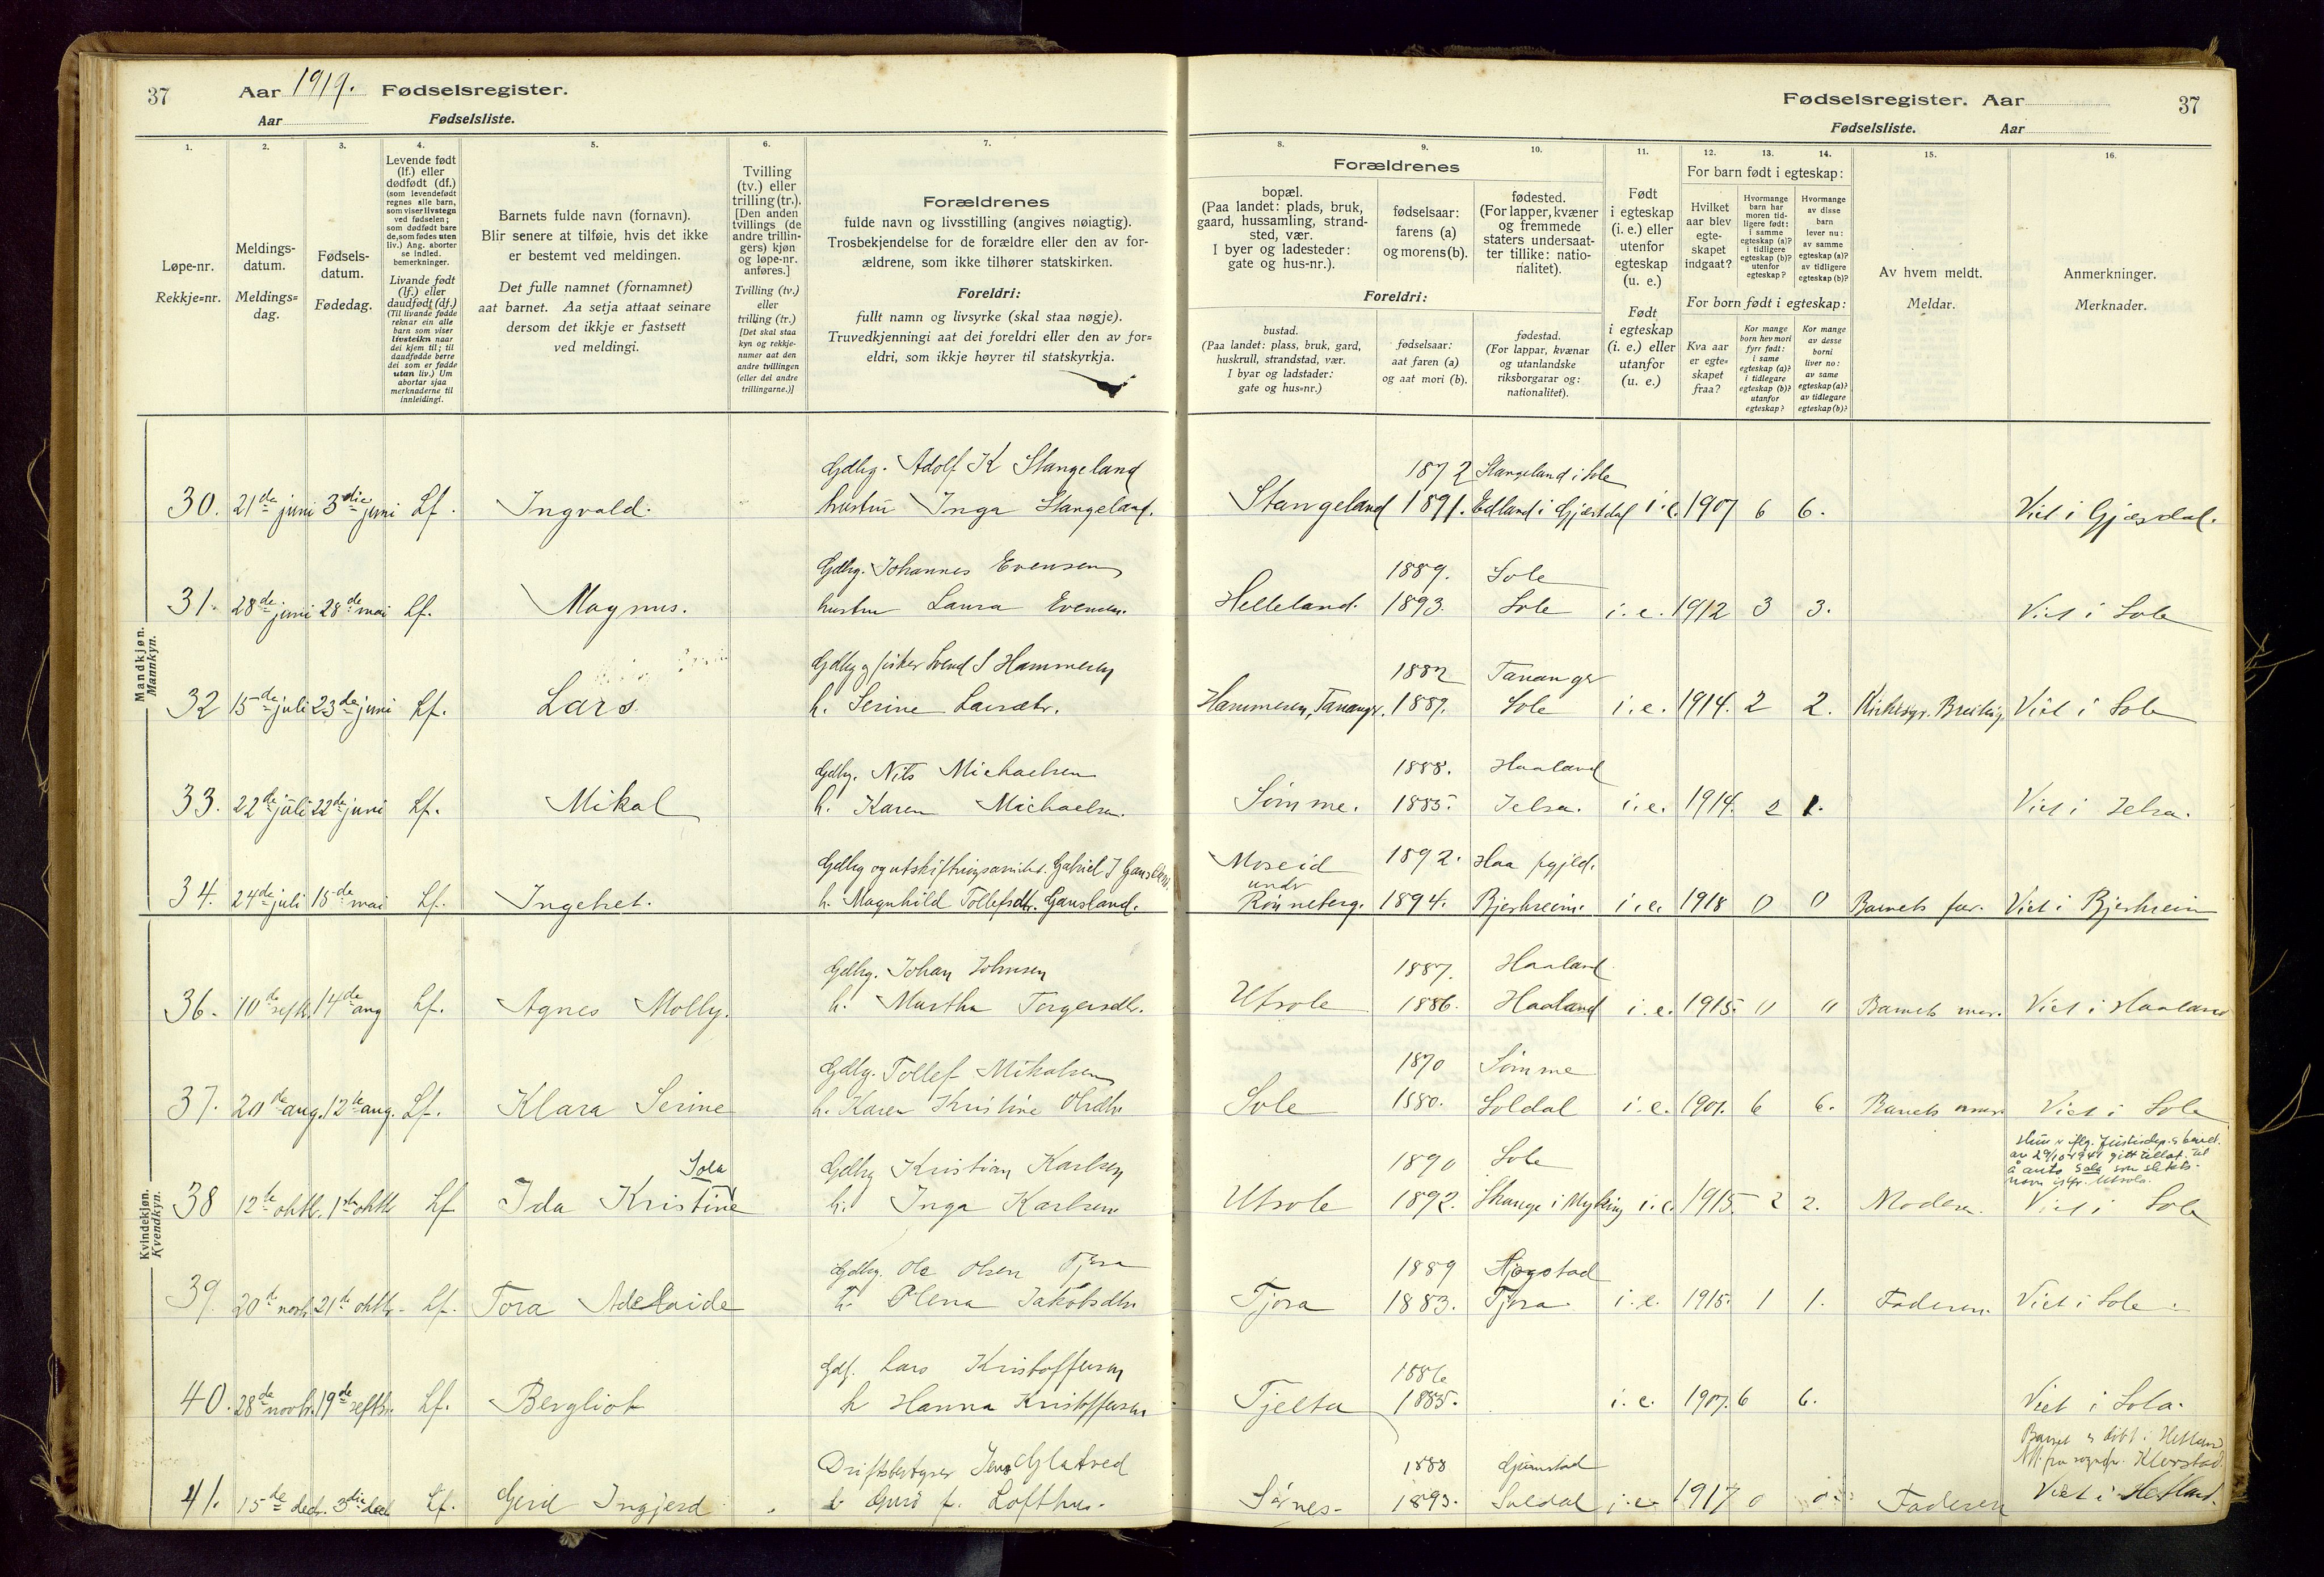 37 Aar 1919. Fødselsregister.
Aar Fødselsliste.
Fødselsregister. Aar 37
Fødselsliste. Aar
1. 2. 3. 4. 5. 6. 7. 8. 9. 10. 11. 12. 13. 14. 15. 16.
Løpe-nr.
Rekkje=nr.
Meldings-
datum.
Meldings=
dag.
Fødsels-
datum.
Fødedag.
Levende født
(lf.) eller
dødfødt (df.)
(som levendefødt
regnes alle barn,
som viser livstegn
ved fødselen;
som dødfødt bare
de, som fødes uten
liv.) Ang. aborter
se indled.
bemerkninger.
Livande født
(lf.) eller
daudfødt (df.)
(Til livande fødde
reknar ein alle
barn som viser
livsteikn naar
dei kjem til; til
daudfødde berre
dei som er fødde
utan liv.) Um
abortar sjaa
merknaderne til
innleidingi.
Barnets fulde navn (fornavn).
Blir senere at tilføie, hvis det ikke
er bestemt ved meldingen.
Det fulle namnet (fornamnet)
aat barnet. Aa setja attaat seinare
dersom det ikkje er fastsett
ved meldingi.
Tvilling
(tv.) eller
trilling (tr.).
[Den anden
tvillings (de
andre trillin-
gers) kjøn
og løpe-nr.
anføres.]
Tvilling (tv.)
eller
trilling (tr.)
[Det skal staa
kyn og rekkje-
numer aat den
andre tvillingen
(eller dei andre
trillingarne.)]
Forældrenes
fulde navn og livsstilling (angives nøiagtig).
Trosbekjendelse for de forældre eller den av for-
ældrene, som ikke tilhører statskirken.
Foreldri:
fullt namn og livsyrke (skal staa nøgje).
Truvedkjenningi aat dei foreldri eller den av for=
eldri, som ikkje høyrer til statskyrkja.
Forældrenes
bopæl.
(Paa landet: plads, bruk,
gaard, hussamling, strand-
sted, vær.
I byer og ladesteder:
gate og hus-nr.).
fødselsaar:
farens (a)
og morens (b).
fødested.
(For lapper, kvæner
og fremmede
staters undersaat-
ter tillike: natio-
nalitet).
Foreldri:
bustad.
(Paa landet: plass, bruk, gard,
huskrull, strandstad, vær.
I byar og ladstader:
gate og hus=nr.)
fødselsaar:
aat faren (a)
og aat mori (b).
fødestad.
(For lappar, kvænar
og utanlandske
riksborgarar og:
nationalitet).
Født
i egteskap
(i. e.) eller
utenfor
egteskap
(u. e.)
Født
i egteskap
(i. e.) eller
utanfor
(u. e.)
For barn født i egteskap:
Hvilket
aar blev
egte-
skapet
indgaat?
Hvormange
barn har
moren tid-
ligere født:
i samme
egteskap (a)?
i tidligere
egteskap (b)?
utenfor
egteskap?
Hvormange
av disse
barn
lever nu:
av samme
egteskap (a)?
av tidligere
egteskap (b)?
For born født i egteskap:
Kva aar
er egte=
skapet
fraa?
Kor mange
born hev mori
fyrr født:
i same
egteskap (a)?
i tidlegare
egteskap (b)?
utanfor
egteskap?
Kor mange
av desse
borni
liver no:
av same
egteskap (a)?
av tidlegare
egteskap (b)?
Av hvem meldt.
Meldar.
Anmerkninger.
Merknader.
Mandkjøn.
Mannkyn.
Gdbg. Adolf K Stangeland 1872 Stangeland i Sole
30. 21de juni 3die juni Lf. Ingvald. hustru Inga Stangeland. Stangeland 1891. Edland i Gjæsdal i.e. 1907 6 6. Viet i Gjæsdal.
Gdbg. Johannes Evensen 1889. Sole
31. 28de juni 28de mai Lf. Magnus. hustru Laura Evensen. Helleland. 1893. Sole i.e. 1912 3 3. Viet i Sole
Gdbg og fisker Svend S Hammersen 1882 Tananger
32 15de juli 23de juni Lf. Lars. h. Serine Larsdtr. Hammeren, Tananger. 1889. Sole i.e. 1914. 2 2. Viet i Sole
Gdbg. Nils Michaelsen 1888. Haaland
33. 22de juli 22de juni Lf. Mikal h. Karen Michaelsen. Sømme. 1885. Jelsa. i.e. 1914. 2 1. Viet i Jelsa.
Gdbg og utskiftningsformand. Gabriel J Gausland. Moseid 1892. Haa pgjld.
34. 24de juli 15de mai Lf. Ingebret. h. Magnhild Tollefsdtr. Gausland. under Rønneberg. 1894. Bjerkreim. i.e. 1918 0 0 Barnets far. Viet i Bjerkreim
Kvindekjøn.
Kvendkyn.
Gdbg. Johan Johnsen 1887. Haaland
36. 10de septr. 14de aug Lf. Agnes Molly. h. Martha Torgersdtr. Utsole 1886. Haaland i.e. 1915. " " Barnets mor. Viet i Haaland
Gdbg. Tollef Mikalsen 1870 Sømme
37. 20de aug. 12te aug. Lf. Klara Serine h. Karen Kristine Olsdtr. Sole 1880. Soldal i.e. 1901. 6 6. Barnets mor. Viet i Sole
Sola Gdbg Kristian Karlsen 1890 Sole Hun er iflg. Justisdep.s bevill.
av 29/10 1941 gitt tillat. til
å anta Sola som slekts-
navn istf. Utsola.
38 12te oktbr. 1ste oktbr Lf Ida Kristine h. Inga Karlsen Utsole 1892. Skange i Mykling i.e. 1915. 2 2. Moderen. Viet i Sole
Gdbg. Ole Olsen Tjora 1889 Hjogstad
39. 20de novbr. 21de oktbr. Lf. Tora Adelaide h. Olena Jakobsdtr Tjora 1883. Tjora. i.e. 1915. 1 1. Faderen. Viet i Sole.
Gdf. Lars Kristoffersen 1886
40. 28de novbr. 19de septbr. Lf. Bergliot h Hanna Kristoffersen Tjelta 1885. i.e. 1907. 6 6. Viet i Sola.
Barnet er døbt i Hetland
Driftsbestyrer Jens Glatved 1888
41. 15de decbr. 3die decbr Lf. Gerd Ingjerd h Gurò f. Lofthus. Sørnes. 1893. Suldal i.e. 1917 0 0. Faderen Viet i Hetland.